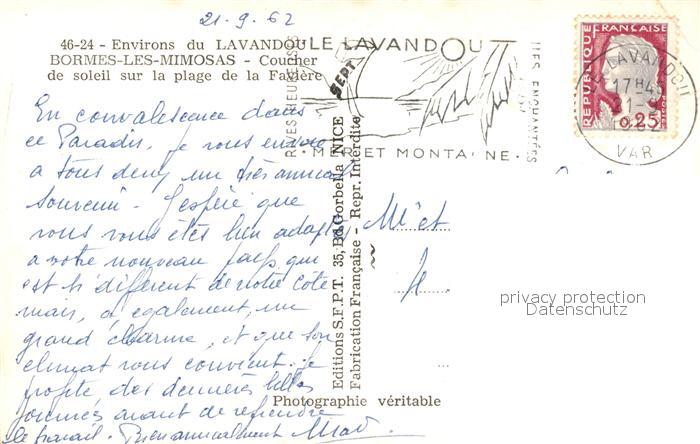 21.9.62
46-24 - Environs du LAVANDOU
BORMES-LES-MIMOSAS - Coucher
de soleil sur la plage de la Favière
LE LAVANDOU
SEPT
RIVES HEUREUSES
ILES ENCHANTÉES
· MER ET MONTAGNE ·
REPUBLIQUE FRANÇAISE
POSTES
0,25
LE LAVANDOU
17H4
21-9
1962
VAR
En convalescence dans
ce Paradis, je vous envoie
à tous deux un très amical
souvenir. J'espère que
vous vous êtes bien adaptés
à votre nouveau pays qui
est si différent de notre côte
mais, a également, un
grand charme, et que son
climat vous convient. Je
profite des dernières belles
journées avant de reprendre
le travail. Bien amicalement
Editions S.E.P.T. 35, Bd Gorbella NICE
Fabrication Française - Repr. Interdite
Mr et
Photographie véritable
privacy protection
Datenschutz